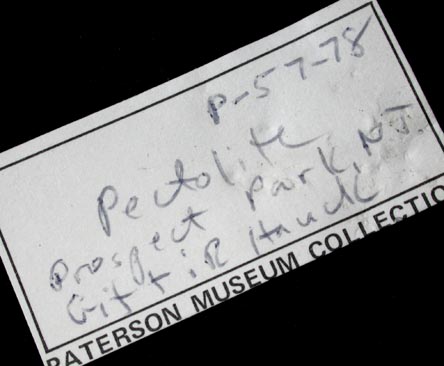 P-57-78
Pectolite
Prospect Park, NJ.
Gift: R Hauck
PATERSON MUSEUM COLLECTIO